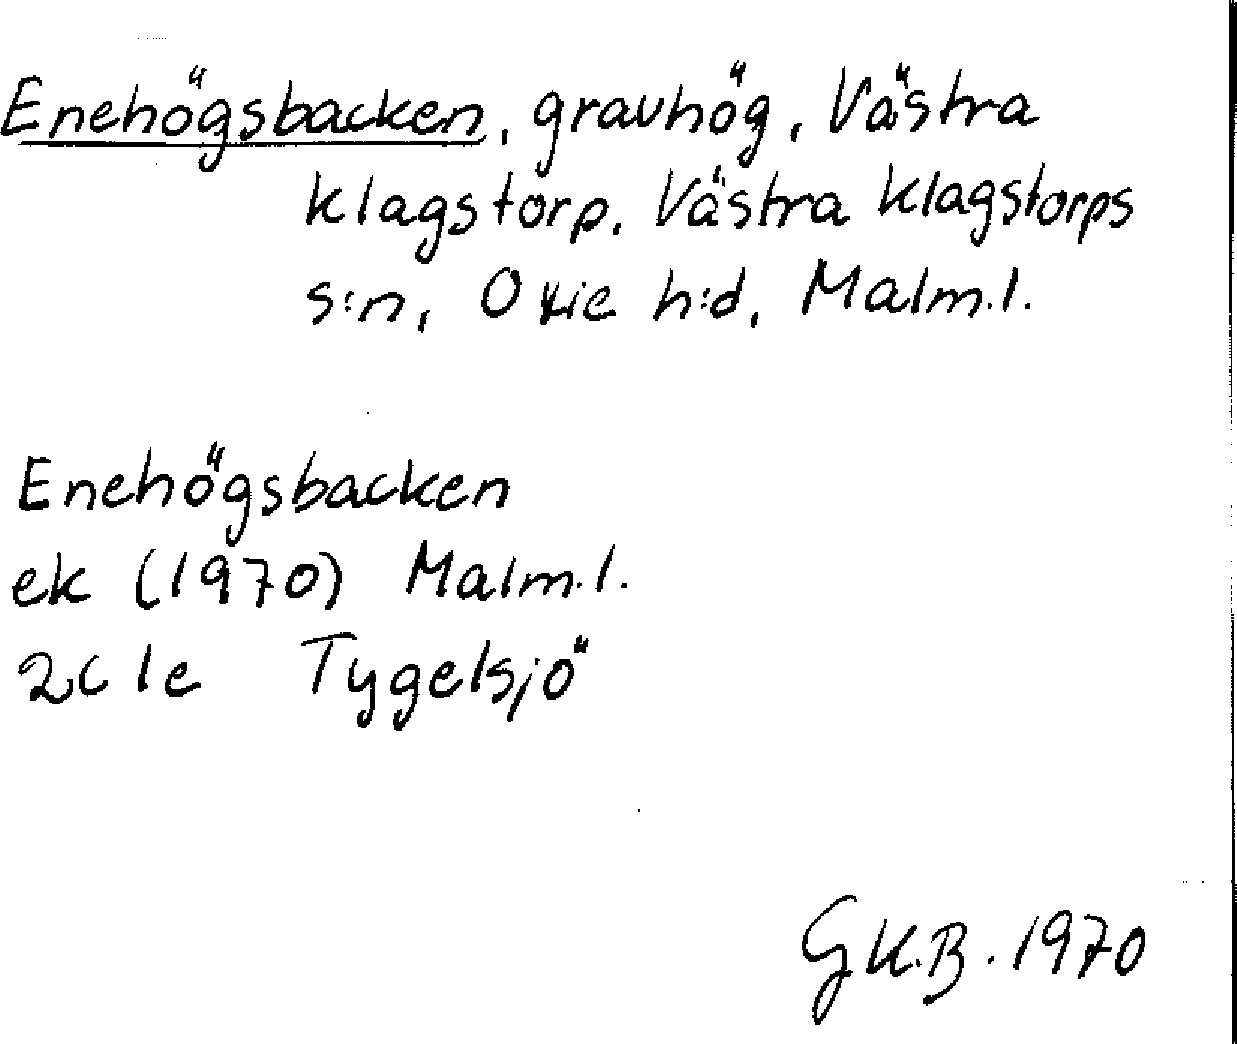 Enehögsbacken, gravhög, Västra
Klagstorp, Västra Klagstorps
s:n, Oxie h:d, Malm.l.
Enehögsbacken
ek (1970) Malm.l.
2C 1e Tygelsjö
G K.B. 1970